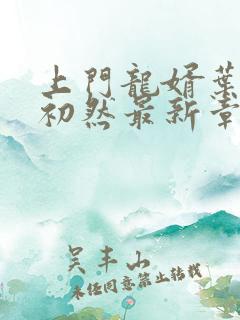 上門龍婿葉
初然最新章
吴丰山
未经同意禁止转载